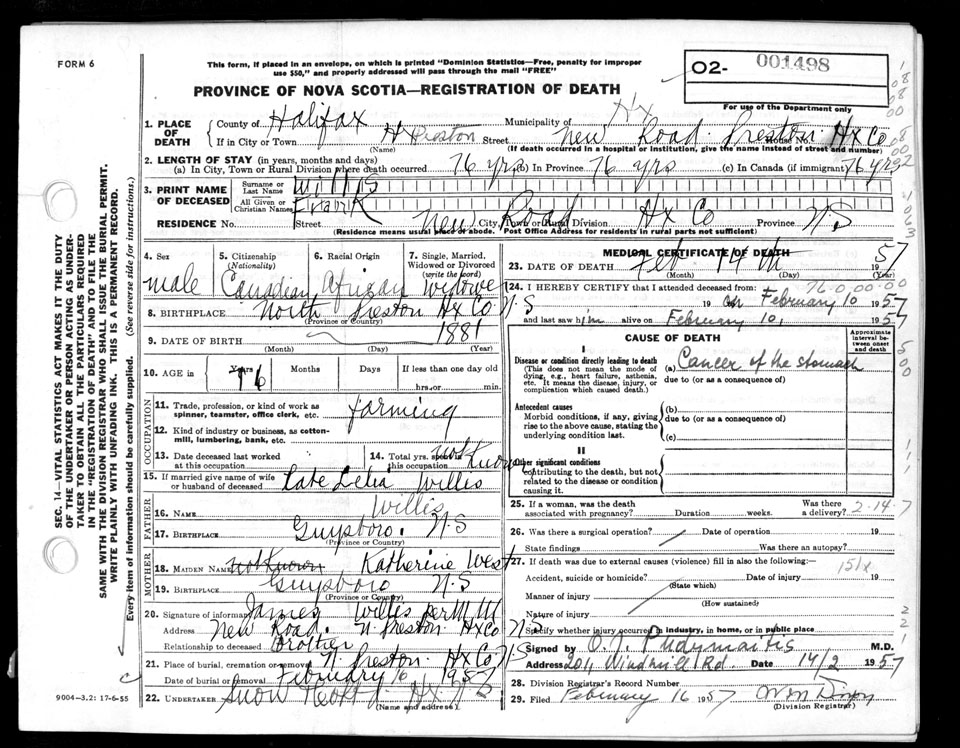 FORM 6
This form, if placed in an envelope, on which is printed "Dominion Statistics—Free, penalty for improper
use $50," and properly addressed will pass through the mail "FREE"
O2- 001498
PROVINCE OF NOVA SCOTIA—REGISTRATION OF DEATH
For use of the Department only
1. PLACE OF DEATH
County of Halifax
Municipality of Hx
If in City or Town Hx Preston Street New Road Preston Hx Co House No.
(Name) (If death occurred in a hospital or institution, give the name instead of street and number)
2. LENGTH OF STAY (in years, months and days)
(a) In City, Town or Rural Division where death occurred 76 yrs (b) In Province 76 yrs (c) In Canada (if immigrant) 76 yrs
3. PRINT NAME OF DECEASED
Surname or Last Name Willis
All Given or Christian Names Frank
RESIDENCE No. Street New Road City, Town or Rural Division Hx Co Province N.S
(Residence means usual place of abode. Post Office Address for residents in rural parts not sufficient)
4. Sex male
5. Citizenship (Nationality) Canadian
6. Racial Origin African
7. Single, Married, Widowed or Divorced (write the word) Widower
8. BIRTHPLACE North Preston Hx Co N.S
(Province or Country)
9. DATE OF BIRTH 1881
(Month) (Day) (Year)
10. AGE in Years 76 Months Days If less than one day old
hrs. or min.
OCCUPATION
11. Trade, profession, or kind of work as spinner, teamster, office clerk, etc. farming
12. Kind of industry or business, as cotton-mill, lumbering, bank, etc.
13. Date deceased last worked at this occupation
14. Total yrs. spent in this occupation not Known
15. If married give name of wife or husband of deceased Late Lelia Willis
FATHER
16. NAME Willis
17. BIRTHPLACE Guysboro. N.S
(Province or Country)
MOTHER
18. MAIDEN NAME not Known Katherine West
19. BIRTHPLACE Guysboro N.S
(Province or Country)
20. Signature of informant James Willis per M M
Address New Road. N. Preston Hx Co N.S
Relationship to deceased Brother
21. Place of burial, cremation or removal N. Preston. Hx Co N.S
Date of burial or removal February 16 1957
22. UNDERTAKER Snow Hx N.S
(Name and address)
9004-3.2: 17-6-55
MEDICAL CERTIFICATE OF DEATH
23. DATE OF DEATH Feb. 14th 1957
(Month) (Day)
76.0.00.00
24. I HEREBY CERTIFY that I attended deceased from:
19 on February 10 1957
and last saw him alive on February 10, 1957
CAUSE OF DEATH
Approximate interval between onset and death
I
Disease or condition directly leading to death
(This does not mean the mode of dying, e.g., heart failure, asthenia, etc. It means the disease, injury, or complication which caused death.)
(a) Cancer of the stomach
due to (or as a consequence of)
Antecedent causes
Morbid conditions, if any, giving rise to the above cause, stating the underlying condition last.
(b)
due to (or as a consequence of)
(c)
II
Other significant conditions
contributing to the death, but not related to the disease or condition causing it.
25. If a woman, was the death associated with pregnancy? Duration weeks. Was there a delivery? 2-14-7
26. Was there a surgical operation? Date of operation 19
State findings Was there an autopsy?
27. If death was due to external causes (violence) fill in also the following:—
151x
Accident, suicide or homicide? Date of injury 19
(State which)
Manner of injury
(How sustained)
Nature of injury
Specify whether injury occurred in industry, in home, or in public place
Signed by O. J. Pudymaitis M.D.
Address 2011 Windmill Rd. Date 14/2 1957
28. Division Registrar's Record Number
29. Filed February 16 1957
(Division Registrar)
SEC. 14—VITAL STATISTICS ACT MAKES IT THE DUTY
OF THE UNDERTAKER OR PERSON ACTING AS UNDER-
TAKER TO OBTAIN ALL THE PARTICULARS REQUIRED
IN THE "REGISTRATION OF DEATH" AND TO FILE THE
SAME WITH THE DIVISION REGISTRAR WHO SHALL ISSUE THE BURIAL PERMIT.
WRITE PLAINLY WITH UNFADING INK. THIS IS A PERMANENT RECORD.
Every item of information should be carefully supplied. (See reverse side for instructions.)